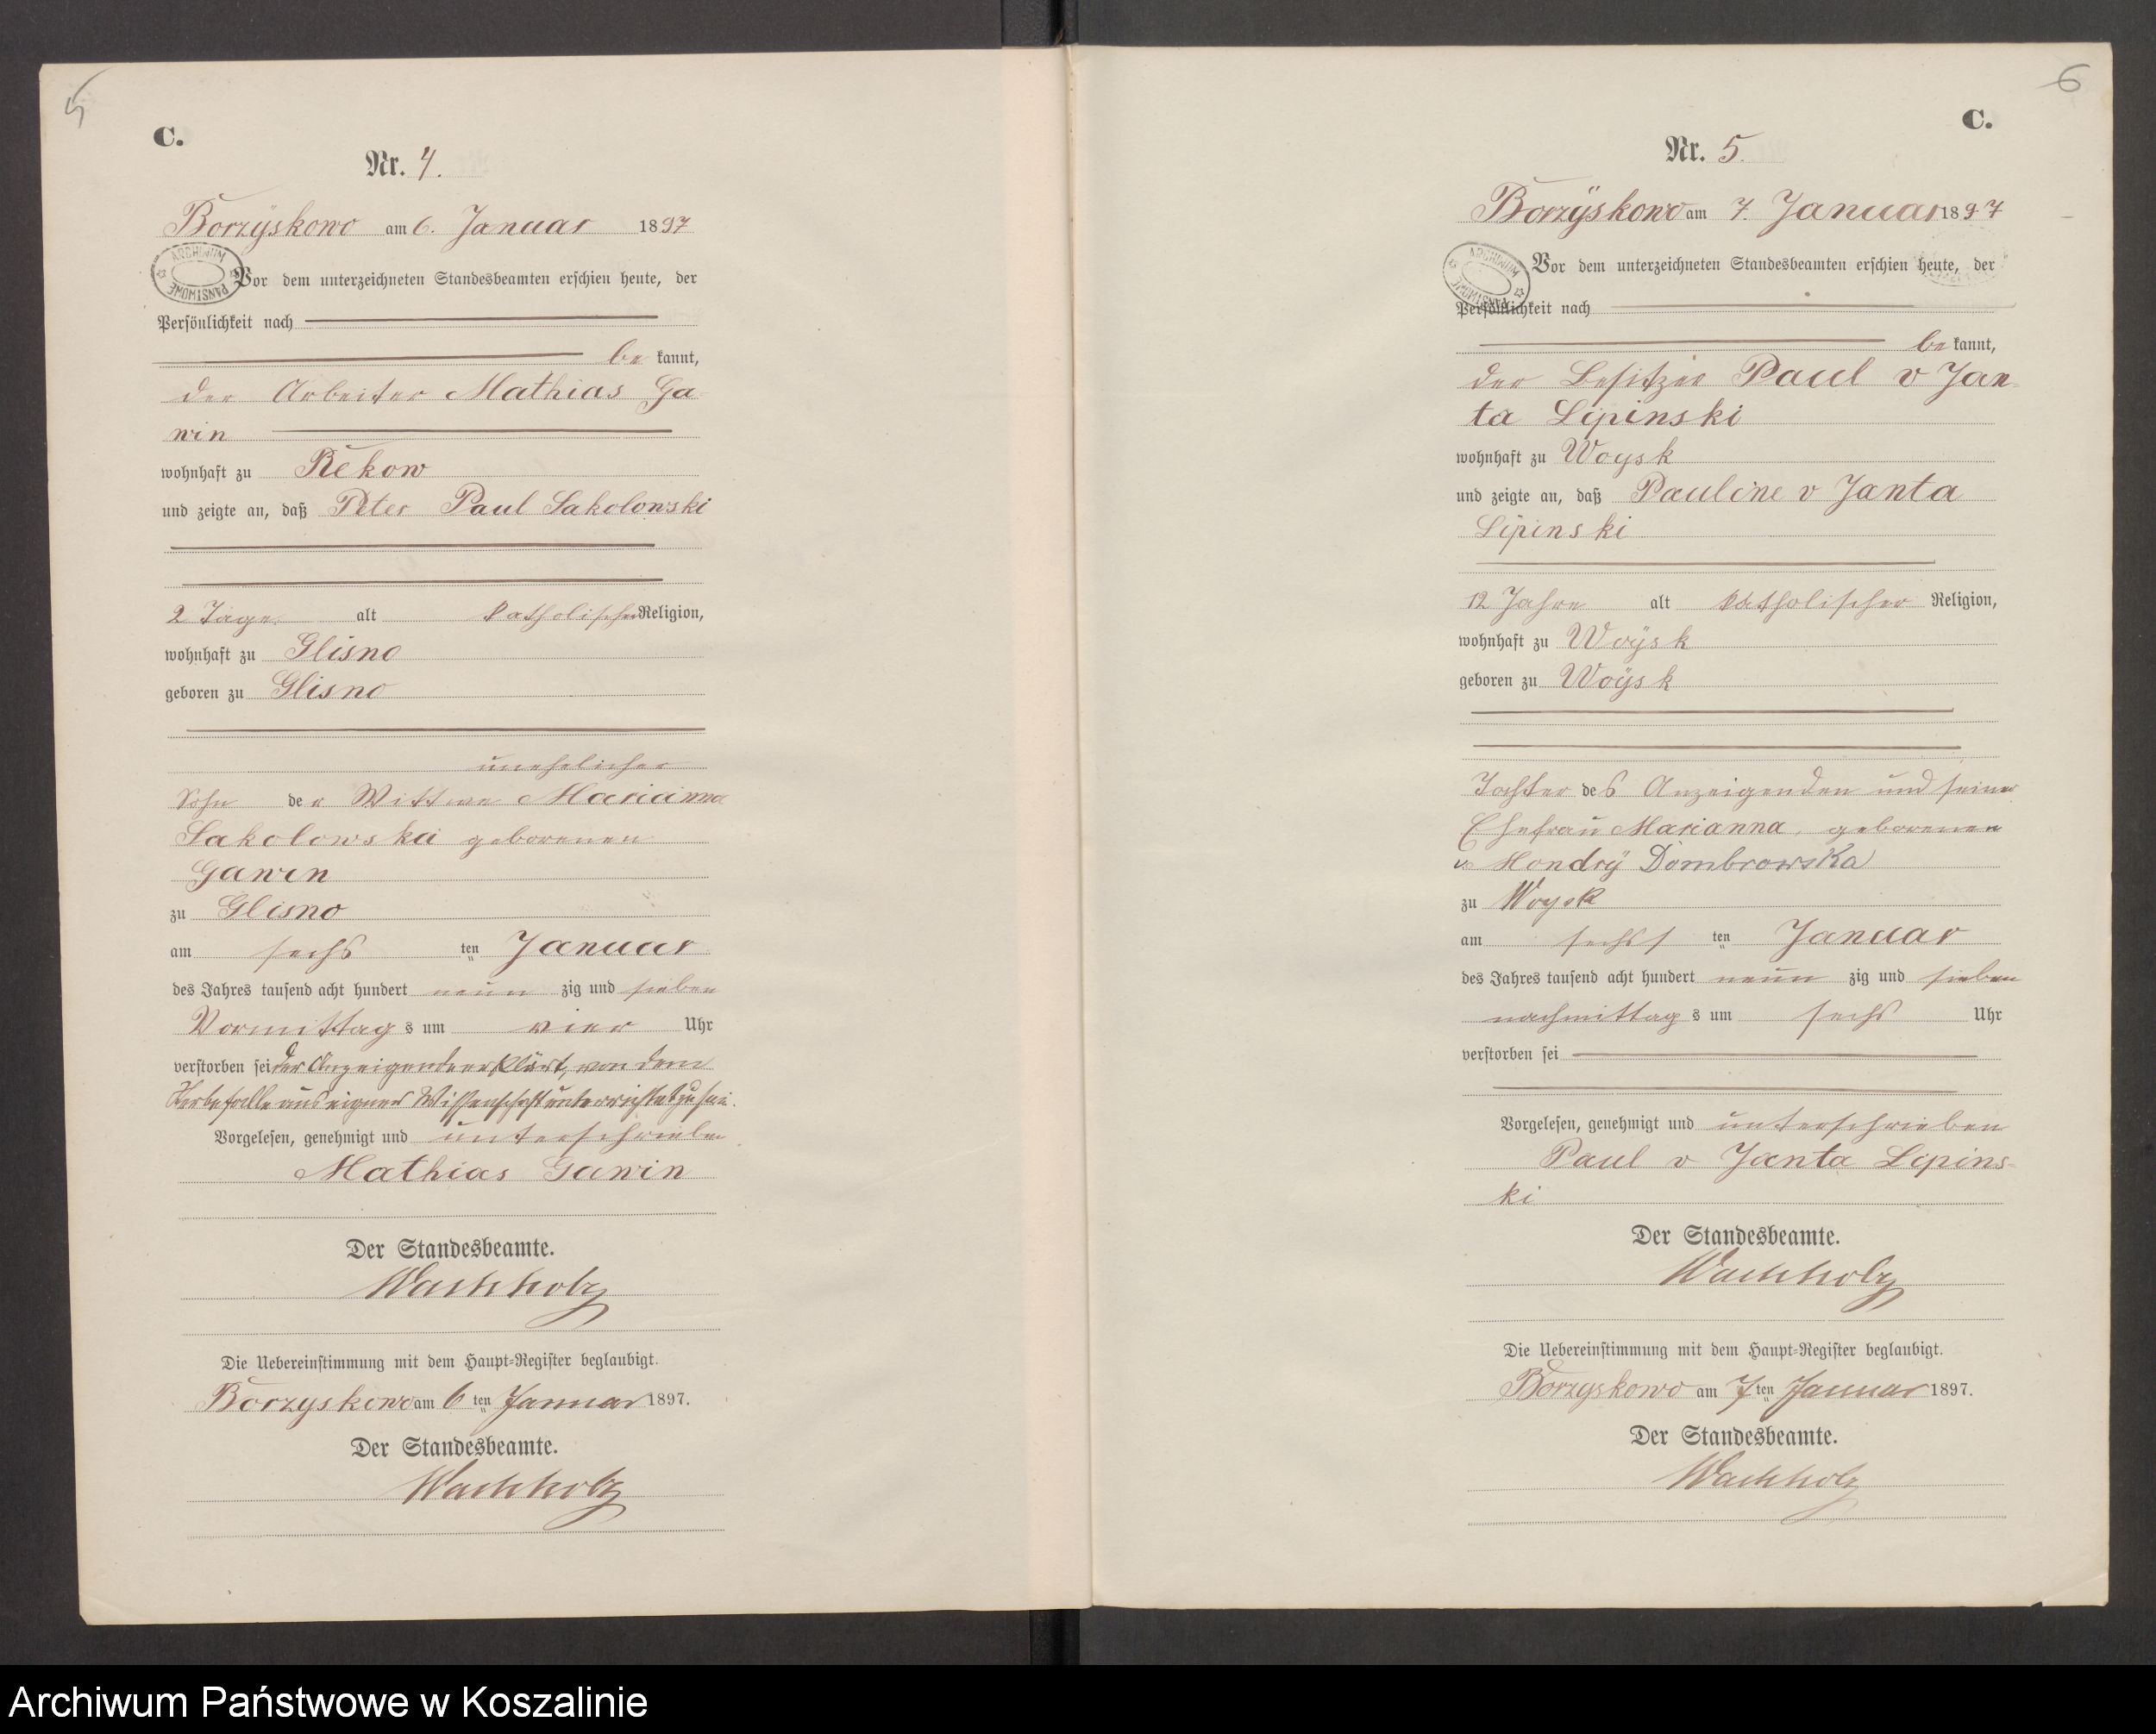 5
C.
Nr. 4.
Borzÿskowo am 6. Januar 1897
ARCHIWUM PAŃSTWOWE
Vor dem unterzeichneten Standesbeamten erschien heute, der
Persönlichkeit nach
be kannt,
der Arbeiter Mathias Ga
win
wohnhaft zu Rekow
und zeigte an, daß Peter Paul Sakolowski
2 Tage alt katholischer Religion,
wohnhaft zu Glisno
geboren zu Glisno
unehelicher
Sohn der Wittwe Marianna
Sakolowska geborenen
Gawin
zu Glisno
am sechs ten Januar
des Jahres tausend acht hundert neun zig und sieben
Vormittag s um vier Uhr
verstorben sei der Anzeigende erklärt, von dem
Sterbefalle aus eigner Wissenschaft unterrichtet zu sein.
Vorgelesen, genehmigt und unterschrieben
Mathias Gawin
Der Standesbeamte.
Wachholz
Die Uebereinstimmung mit dem Haupt-Register beglaubigt.
Borzyskowo am 6 ten Januar 1897.
Der Standesbeamte.
Wachholz
6
C.
Nr. 5.
Borzÿskowo am 7. Januar 1897
ARCHIWUM PAŃSTWOWE
Vor dem unterzeichneten Standesbeamten erschien heute, der
Persönlichkeit nach
be kannt,
der Besitzer Paul v Jan
ta Lipinski
wohnhaft zu Woysk
und zeigte an, daß Pauline v Janta
Lipinski
12 Jahre alt katholischer Religion,
wohnhaft zu Woÿsk
geboren zu Woÿsk
Tochter des Anzeigenden und seiner
Ehefrau Marianna, geborenen
v. Mondrÿ Dombrowska
zu Woysk
am sechs ten Januar
des Jahres tausend acht hundert neun zig und sieben
nachmittag s um sechs Uhr
verstorben sei
Vorgelesen, genehmigt und unterschrieben
Paul v Janta Lipins-
ki
Der Standesbeamte.
Wachholz
Die Uebereinstimmung mit dem Haupt-Register beglaubigt.
Borzyskowo am 7 ten Januar 1897.
Der Standesbeamte.
Wachholz
Archiwum Państwowe w Koszalinie